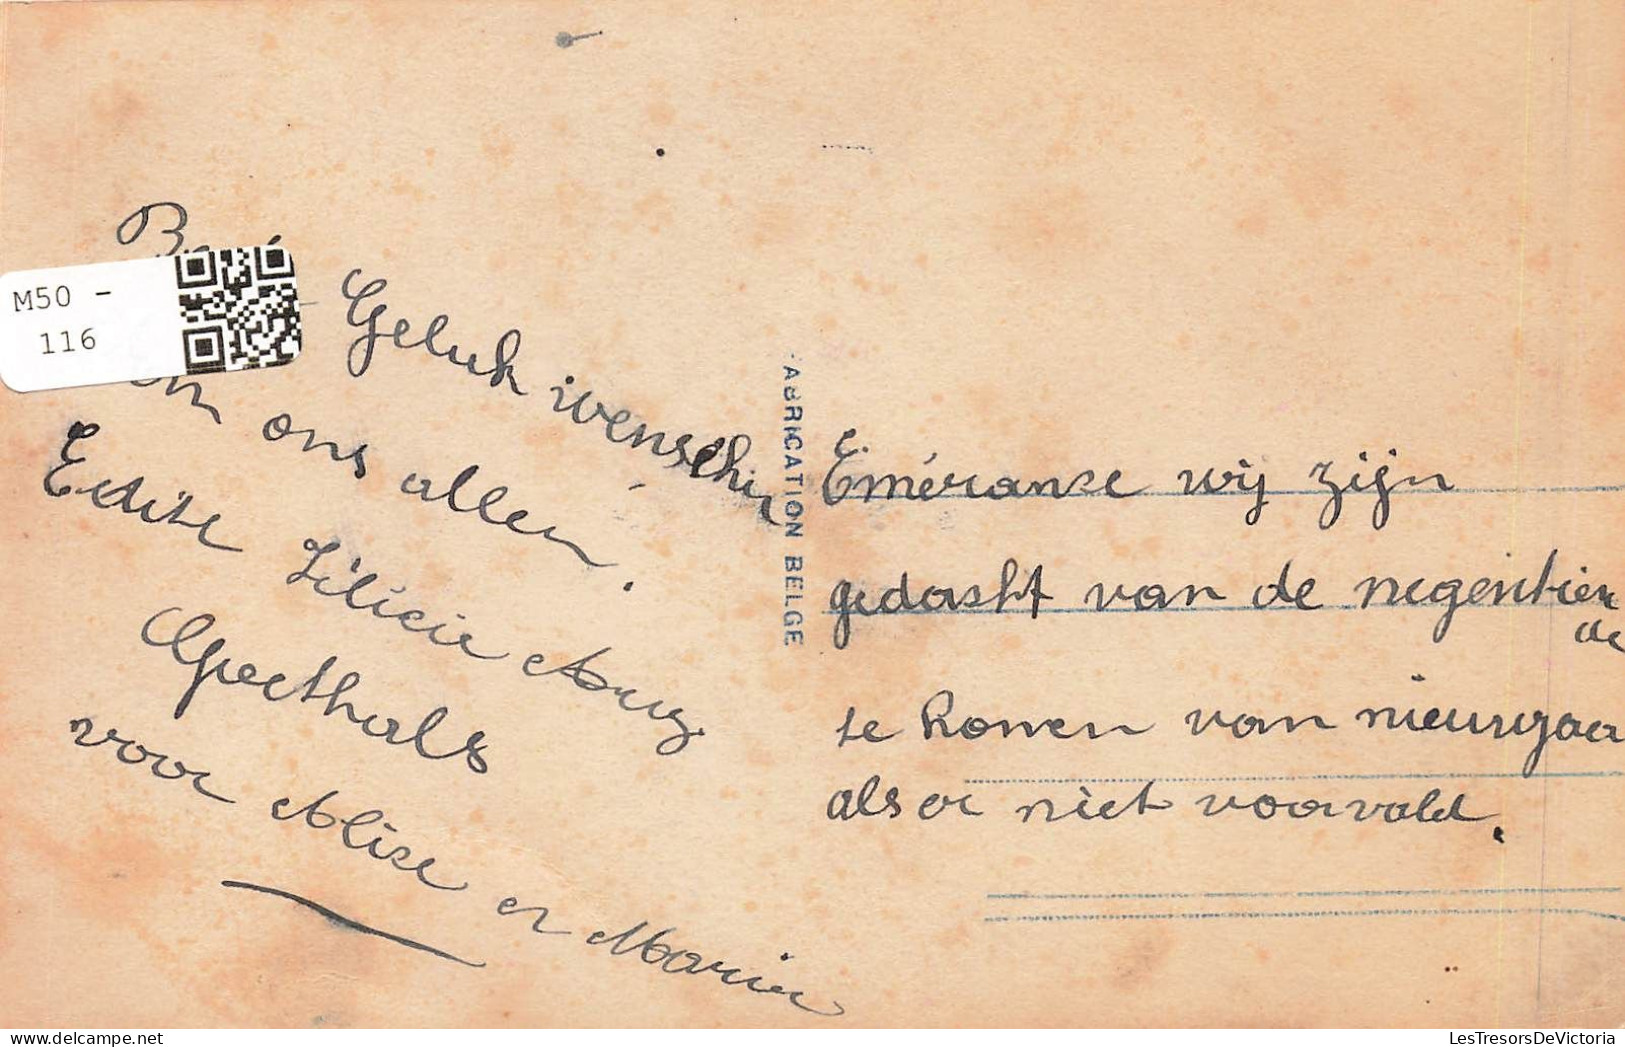 M50 -
116
Geluk wenschen
ons allen.
Edite Zilicie
Gpeethals
voor Alise en Marien
FABRICATION BELGE
Eméranse wij zijn
gedasht van de negentien
de
te komen van nieuwjaar
als er niet voorvald.
LesTresorsDeVictoria